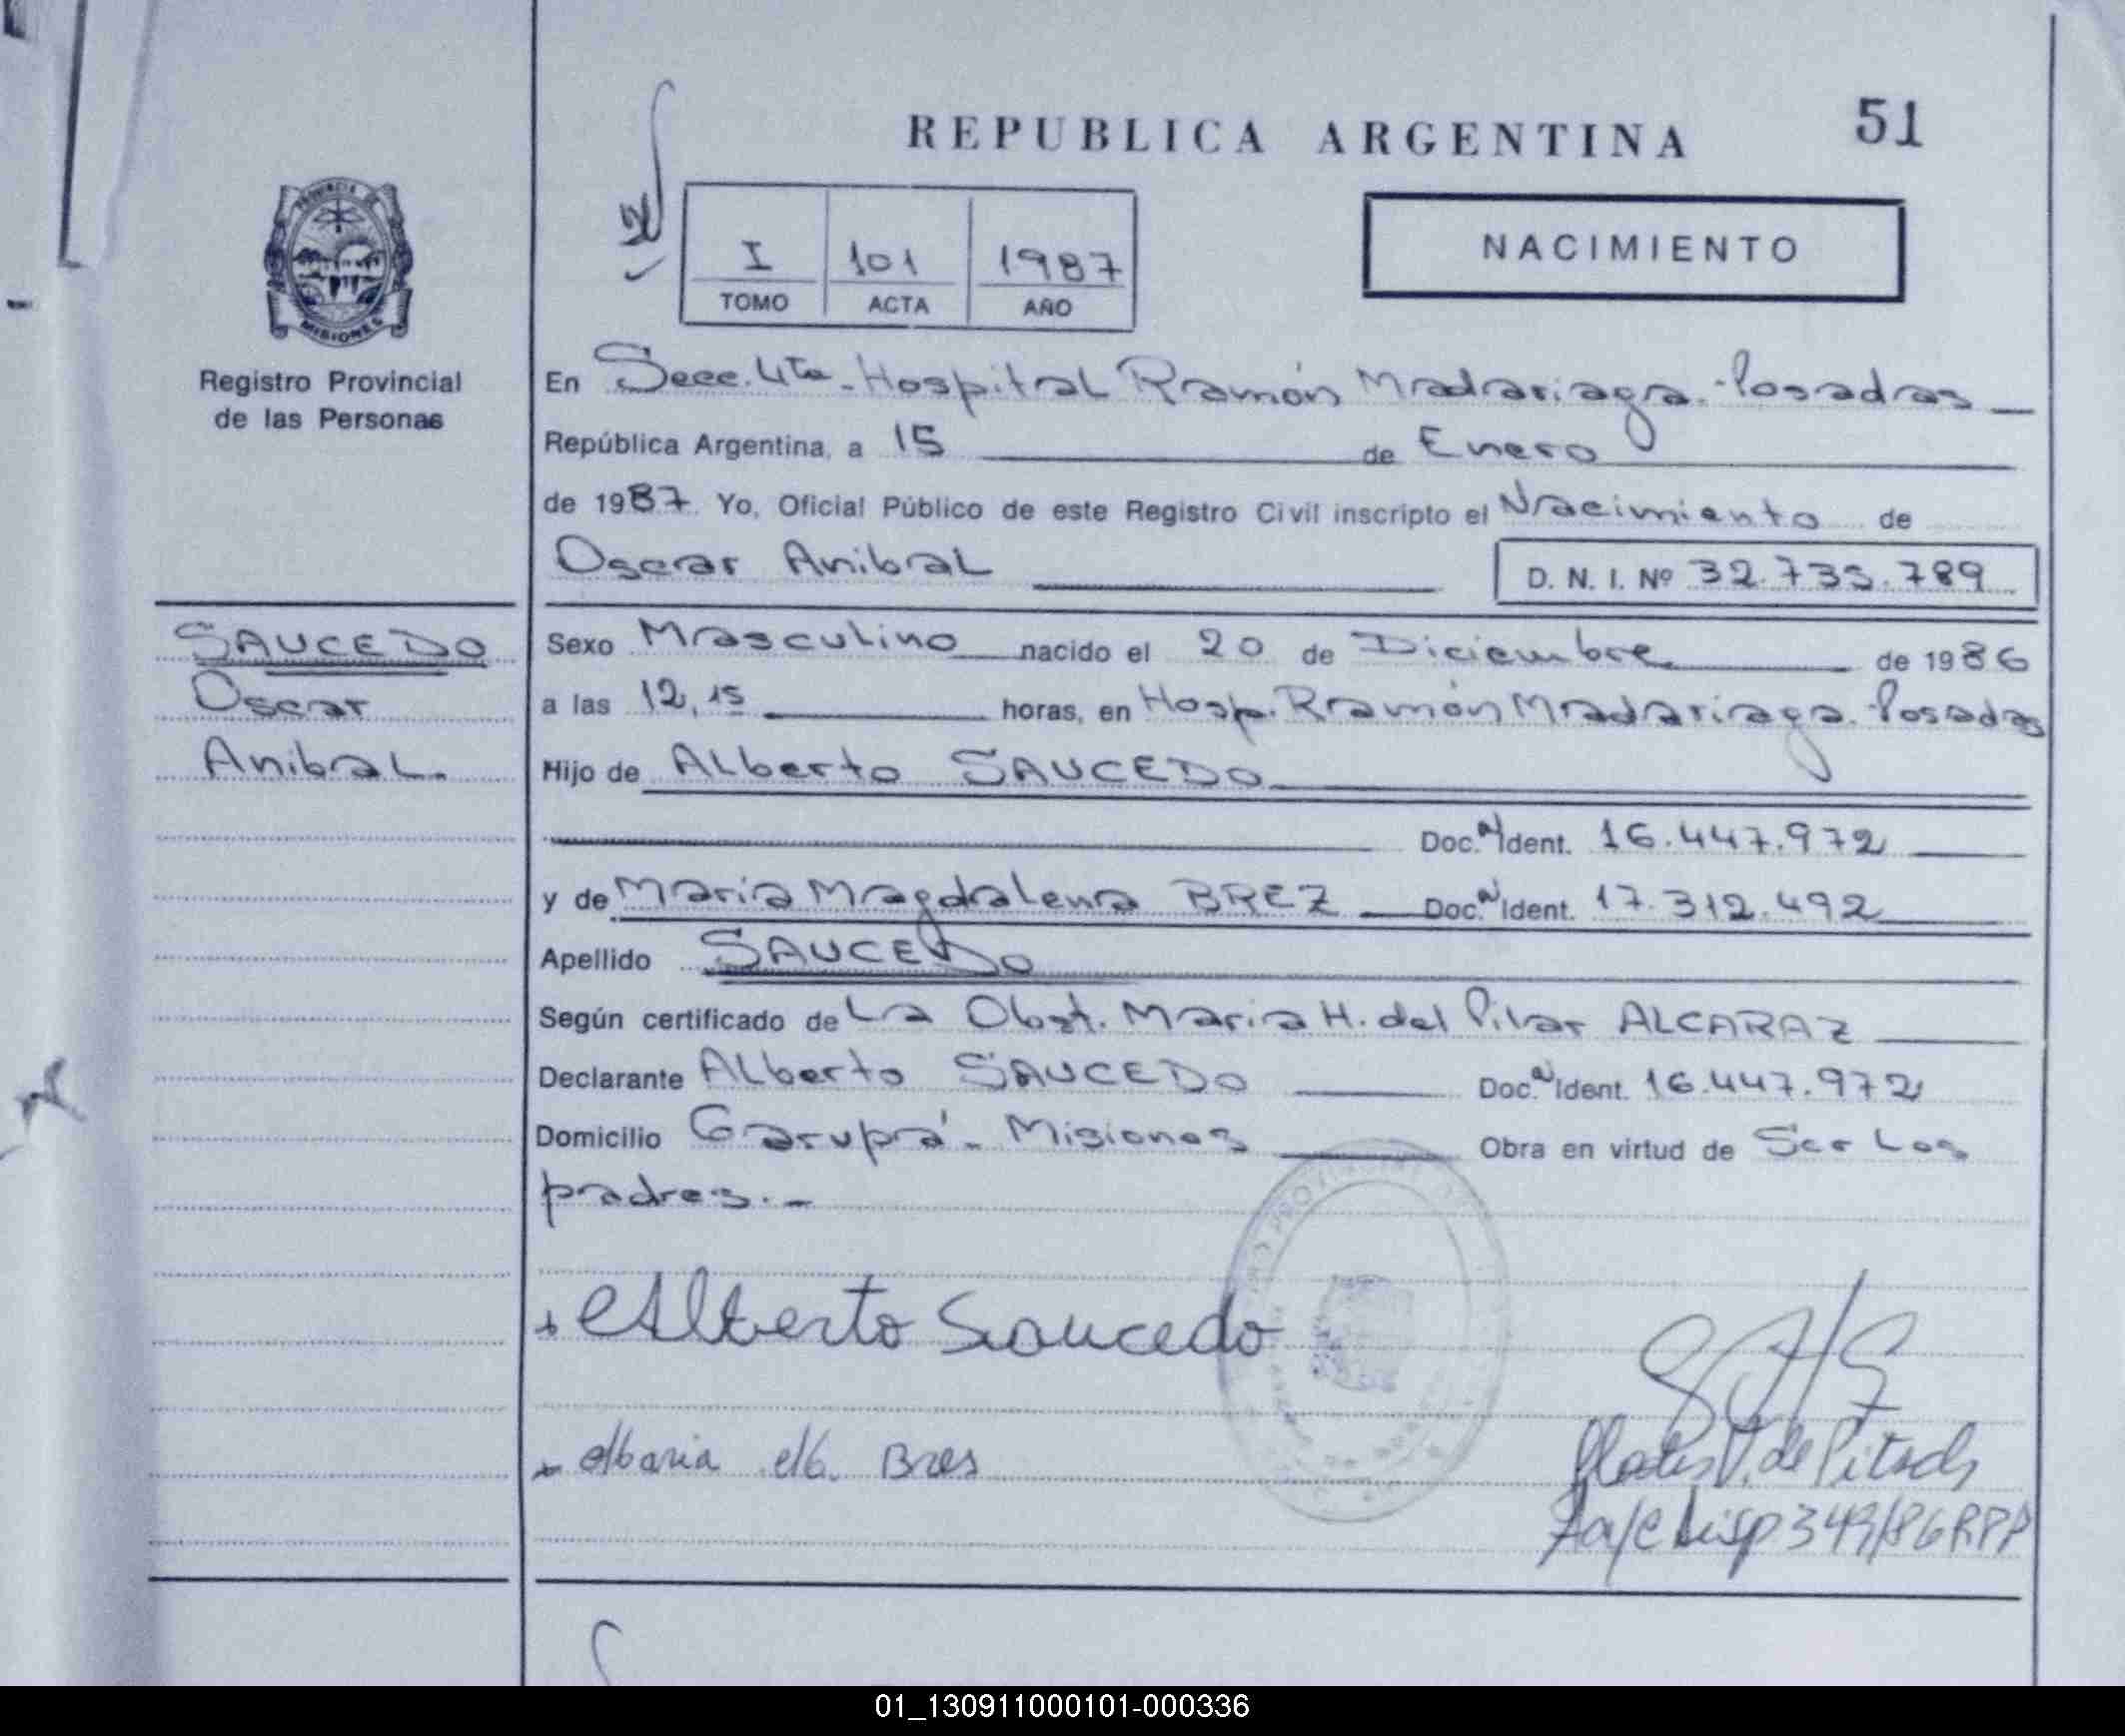 REPUBLICA ARGENTINA
51
PROVINCIA DE
MISIONES
Registro Provincial
de las Personas
I
101
1987
TOMO
ACTA
AÑO
NACIMIENTO
En Secc. 4ta - Hospital Ramón Madariaga - Posadas
República Argentina, a 15 de Enero
de 1987. Yo, Oficial Público de este Registro Civil inscripto el Nacimiento de
Oscar Anibal
D. N. I. Nº 32.735.789
SAUCEDO
Oscar
Anibal.
Sexo Masculino nacido el 20 de Diciembre de 1986
a las 12,15 horas, en Hosp. Ramón Madariaga - Posadas
Hijo de Alberto SAUCEDO
Doc. Ident. 16.447.972
y de Maria Magdalena BREZ Doc. Ident. 17.312.492
Apellido SAUCEDO
Según certificado de La Obst. Maria H. del Pilar ALCARAZ
Declarante Alberto SAUCEDO Doc. Ident. 16.447.972
Domicilio Garupá - Misiones Obra en virtud de Ser Los
padres. -
Alberto Saucedo
Maria M. Bres
349/86 RPP
01_130911000101-000336